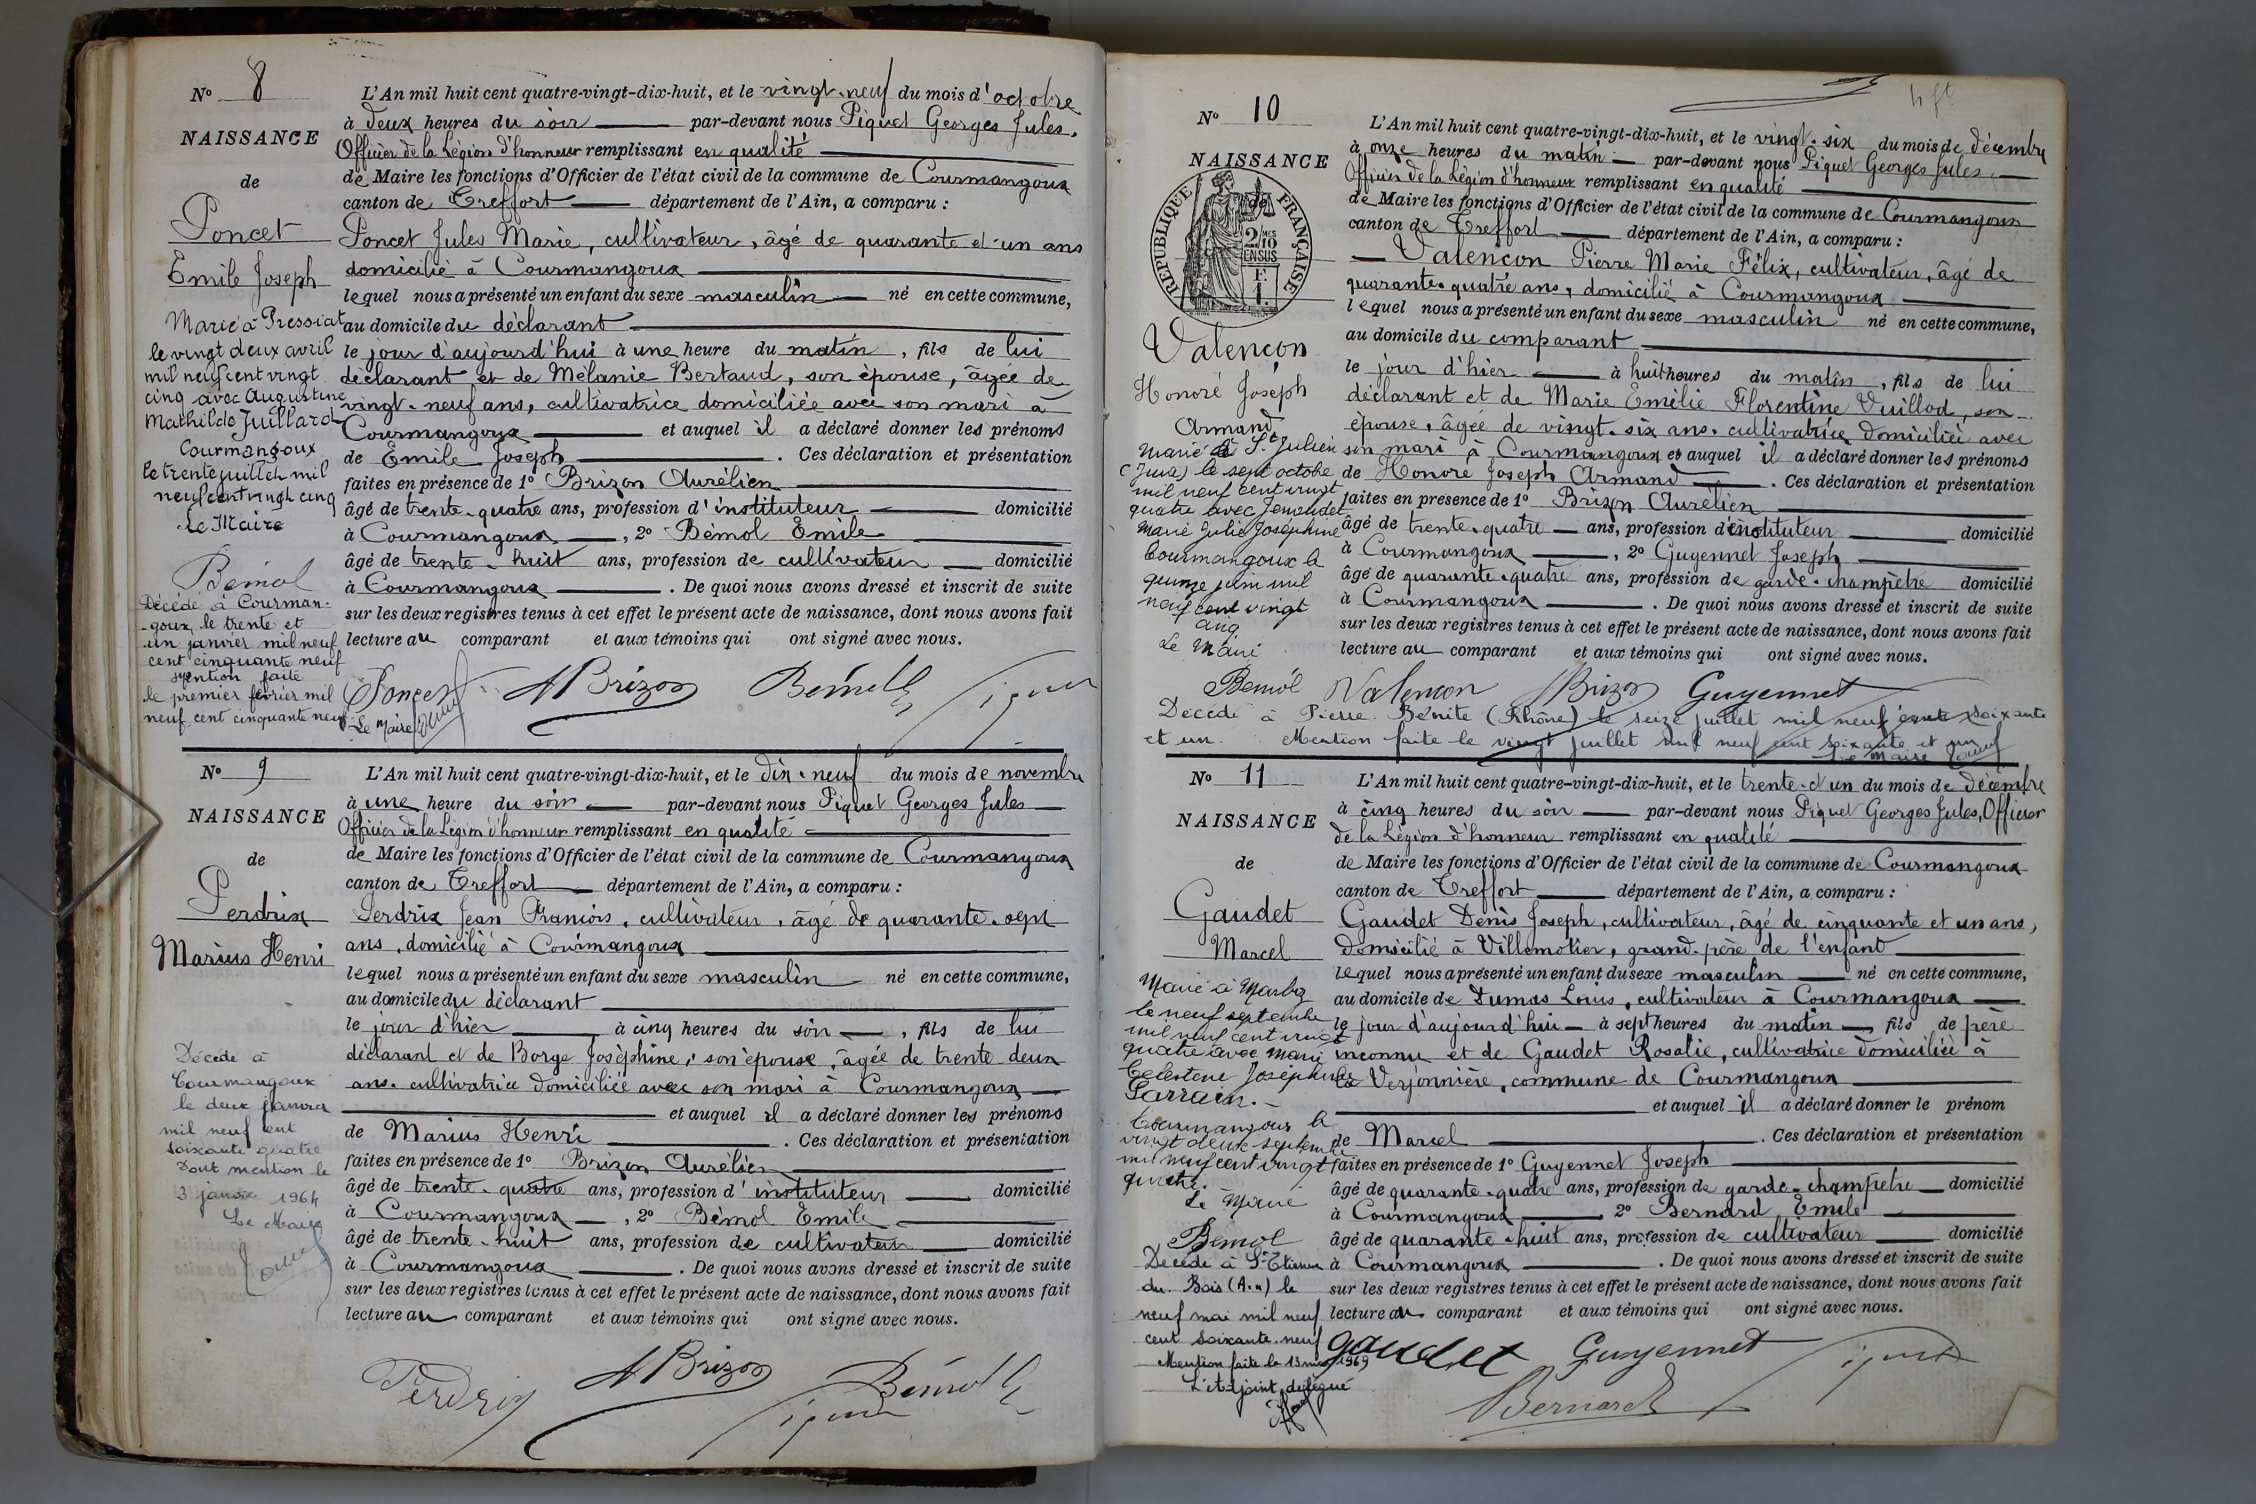 N° 8
NAISSANCE
de
Poncet
Emile Joseph
Marié à Pressiat
le vingt deux avril
mil neuf cent vingt
cinq avec Augustine
Mathilde Juillard
Courmangoux
le trente juillet mil
neuf cent vingt cinq
Le Maire
Bémol
Décédé à Courman-
-goux, le trente et
un janvier mil neuf
cent cinquante neuf
mention faite
le premier février mil
neuf cent cinquante neuf
Le Maire
L'An mil huit cent quatre-vingt-dix-huit, et le vingt-neuf du mois d'octobre
à deux heures du soir par-devant nous Piquet Georges Jules,
Officier de la Légion d'honneur remplissant en qualité
de Maire les fonctions d'Officier de l'état civil de la commune de Courmangoux
canton de Treffort département de l'Ain, a comparu :
Poncet Jules Marie, cultivateur, âgé de quarante et un ans
domicilié à Courmangoux
lequel nous a présenté un enfant du sexe masculin né en cette commune,
au domicile du déclarant
le jour d'aujourd'hui à une heure du matin, fils de lui
déclarant et de Mélanie Bertaud, son épouse, âgée de
vingt-neuf ans, cultivatrice domiciliée avec son mari à
Courmangoux et auquel il a déclaré donner les prénoms
de Emile Joseph. Ces déclaration et présentation
faites en présence de 1° Brizon Aurélien
âgé de trente-quatre ans, profession d'instituteur domicilié
à Courmangoux, 2° Bémol Emile
âgé de trente-huit ans, profession de cultivateur domicilié
à Courmangoux. De quoi nous avons dressé et inscrit de suite
sur les deux registres tenus à cet effet le présent acte de naissance, dont nous avons fait
lecture au comparant et aux témoins qui ont signé avec nous.
Poncet ABrizon Bémol E Piquet
N° 9
NAISSANCE
de
Perdrix
Marius Henri
Décédé à
Courmangoux
le deux janvier
mil neuf cent
soixante quatre
Dont mention le
3 janvier 1964
Le Maire
L'An mil huit cent quatre-vingt-dix-huit, et le dix-neuf du mois de novembre
à une heure du soir par-devant nous Piquet Georges Jules
Officier de la Légion d'honneur remplissant en qualité
de Maire les fonctions d'Officier de l'état civil de la commune de Courmangoux
canton de Treffort département de l'Ain, a comparu :
Perdrix Jean François, cultivateur, âgé de quarante-sept
ans, domicilié à Courmangoux
lequel nous a présenté un enfant du sexe masculin né en cette commune,
au domicile du déclarant
le jour d'hier à cinq heures du soir, fils de lui
déclarant et de Borge Joséphine, son épouse, âgée de trente deux
ans, cultivatrice domiciliée avec son mari à Courmangoux
et auquel il a déclaré donner les prénoms
de Marius Henri. Ces déclaration et présentation
faites en présence de 1° Brizon Aurélien
âgé de trente-quatre ans, profession d'instituteur domicilié
à Courmangoux, 2° Bémol Emile
âgé de trente-huit ans, profession de cultivateur domicilié
à Courmangoux. De quoi nous avons dressé et inscrit de suite
sur les deux registres tenus à cet effet le présent acte de naissance, dont nous avons fait
lecture au comparant et aux témoins qui ont signé avec nous.
Perdrix ABrizon Bémol E
Piquet
N° 10
NAISSANCE
de
REPUBLIQUE FRANÇAISE
2/10 MES
EN SUS
F.
1.
Valençon
Honoré Joseph
Armand
Marié à St Julien
(Jura) le sept octobre
mil neuf cent vingt
quatre avec Jemaudet
Marie Julie Joséphine
Courmangoux le
quinze juin mil
neuf cent vingt
cinq
Le Maire
Bémol
L'An mil huit cent quatre-vingt-dix-huit, et le vingt-six du mois de décembre
à onze heures du matin par-devant nous Piquet Georges Jules,
Officier de la Légion d'honneur remplissant en qualité
de Maire les fonctions d'Officier de l'état civil de la commune de Courmangoux
canton de Treffort département de l'Ain, a comparu :
Valençon Pierre Marie Félix, cultivateur, âgé de
quarante-quatre ans, domicilié à Courmangoux
lequel nous a présenté un enfant du sexe masculin né en cette commune,
au domicile du comparant
le jour d'hier à huit heures du matin, fils de lui
déclarant et de Marie Emélie Florentine Vuillod, son
épouse, âgée de vingt-six ans, cultivatrice domiciliée avec
son mari à Courmangoux et auquel il a déclaré donner les prénoms
de Honoré Joseph Armand. Ces déclaration et présentation
faites en présence de 1° Brizon Aurélien
âgé de trente-quatre ans, profession d'instituteur domicilié
à Courmangoux, 2° Guyennet Joseph
âgé de quarante-quatre ans, profession de garde-champêtre domicilié
à Courmangoux. De quoi nous avons dressé et inscrit de suite
sur les deux registres tenus à cet effet le présent acte de naissance, dont nous avons fait
lecture au comparant et aux témoins qui ont signé avec nous.
Valençon ABrizon Guyennet
Décédé à Pierre-Bénite (Rhône) le seize juillet mil neuf cent soixante
et un. Mention faite le vingt juillet mil neuf cent soixante et un
Le Maire
N° 11
NAISSANCE
de
Gaudet
Marcel
Marié à Marboz
le neuf septembre
mil neuf cent vingt
quatre avec Marie
Célestine Joséphine
Sarrain.
Courmangoux le
vingt deux septembre
mil neuf cent vingt
quatre.
Le Maire
Bémol
Décédé à St Etienne
du Bois (Ain) le
neuf mai mil neuf
cent soixante-neuf
Mention faite le 13 mai 1969
L'Adjoint délégué
L'An mil huit cent quatre-vingt-dix-huit, et le trente-et un du mois de décembre
à cinq heures du soir par-devant nous Piquet Georges Jules, Officier
de la Légion d'honneur remplissant en qualité
de Maire les fonctions d'Officier de l'état civil de la commune de Courmangoux
canton de Treffort département de l'Ain, a comparu :
Gaudet Denis Joseph, cultivateur, âgé de cinquante et un ans,
domicilié à Villemotier, grand-père de l'enfant
lequel nous a présenté un enfant du sexe masculin né en cette commune,
au domicile de Dumas Louis, cultivateur à Courmangoux
le jour d'aujourd'hui à sept heures du matin, fils de père
inconnu et de Gaudet Rosalie, cultivatrice domiciliée à
la Verjonnière, commune de Courmangoux
et auquel il a déclaré donner le prénom
de Marcel. Ces déclaration et présentation
faites en présence de 1° Guyennet Joseph
âgé de quarante-quatre ans, profession de garde-champêtre domicilié
à Courmangoux 2° Bernard Emile
âgé de quarante-huit ans, profession de cultivateur domicilié
à Courmangoux. De quoi nous avons dressé et inscrit de suite
sur les deux registres tenus à cet effet le présent acte de naissance, dont nous avons fait
lecture au comparant et aux témoins qui ont signé avec nous.
gaudet Guyennet Piquet
Bernard